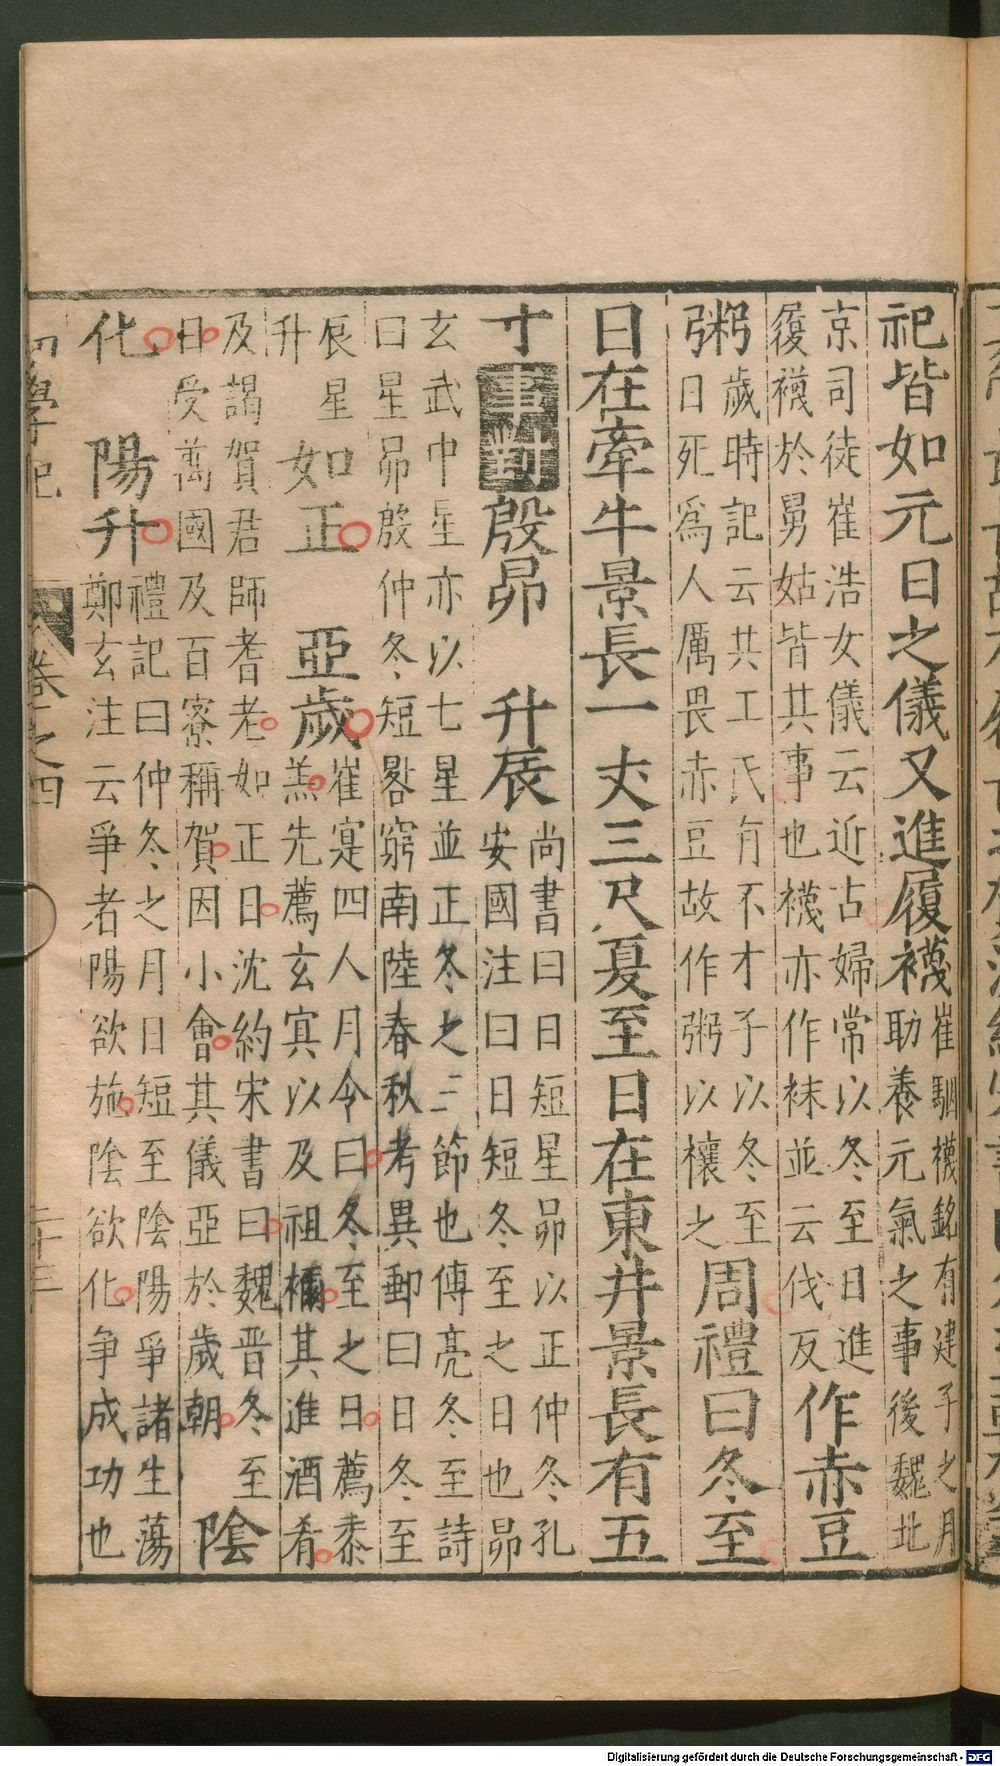 祀皆如元日之儀又進履襪崔駰襪銘有建子之月助養元氣之事後魏北
京司徒崔浩女儀云近古婦常以冬至日進履襪於舅姑皆其事也襪亦作袜並云伐反作赤豆
粥歲時記云共工氏有不才子以冬至日死為人厲畏赤豆故作粥以禳之周禮曰冬至
日在牽牛景長一丈三尺夏至日在東井景長有五
寸事對殷昴 升辰尚書曰日短星昴以正仲冬孔安國注曰日短冬至之日也昴
玄武中星亦以七星並正冬之三節也傅亮冬至詩曰星昴殷仲冬短晷窮南陸春秋考異郵曰日冬至
辰星升 如正 亞歲崔寔四人月令曰冬至之日薦黍羔先薦玄冥以及祖禰其進酒肴
及謁賀君師耆老如正日沈約宋書曰魏晉冬至日受萬國及百寮稱賀因小會其儀亞於歲朝 陰
化 陽升禮記曰仲冬之月日短至陰陽爭諸生蕩鄭玄注云爭者陽欲施陰欲化爭成功也
初學記 卷之四 二十三
Digitalisierung gefördert durch die Deutsche Forschungsgemeinschaft - DFG